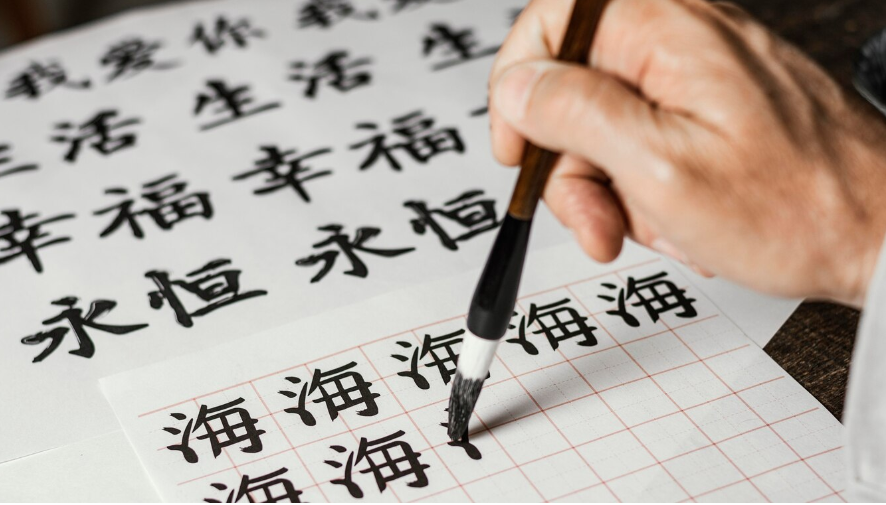 我爱你 我爱
生活 生活 生
幸福 幸福
永恒 永恒
海 海 海 海 海
海 海